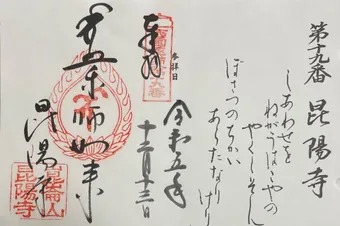 第十九番 昆陽寺
しあわせを
ねがうはこやの
やくしそん
ぼさつのちかい
あらたなりけり
奉拝
参拝日
令和五年
十二月十三日
薬師如来
昆陽寺
昆陽寺